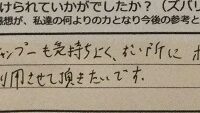 けられていかがでしたか？（ズバリ
感想が、私達の何よりの力となり今後の参考と
ャンプーも気持ちよく、
利用させて頂きたいです。